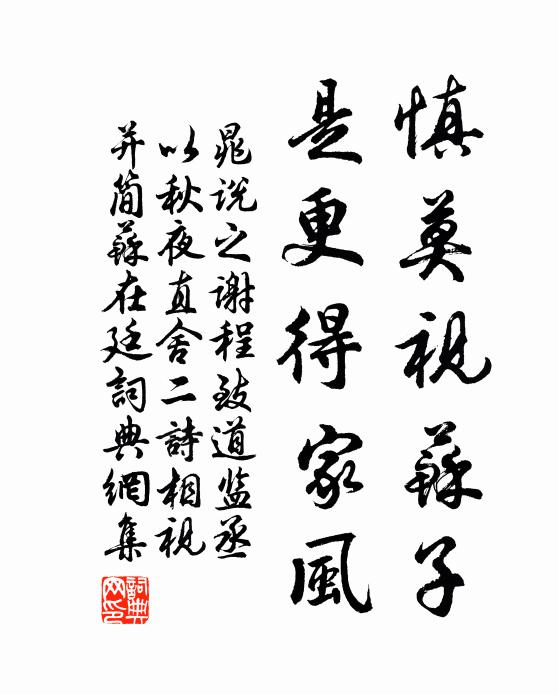 慎莫視蘇子
是更得家風
晁說之謝程致道监丞
以秋夜直舍二詩相視
并简蘇在廷詞典網集
詞典网印